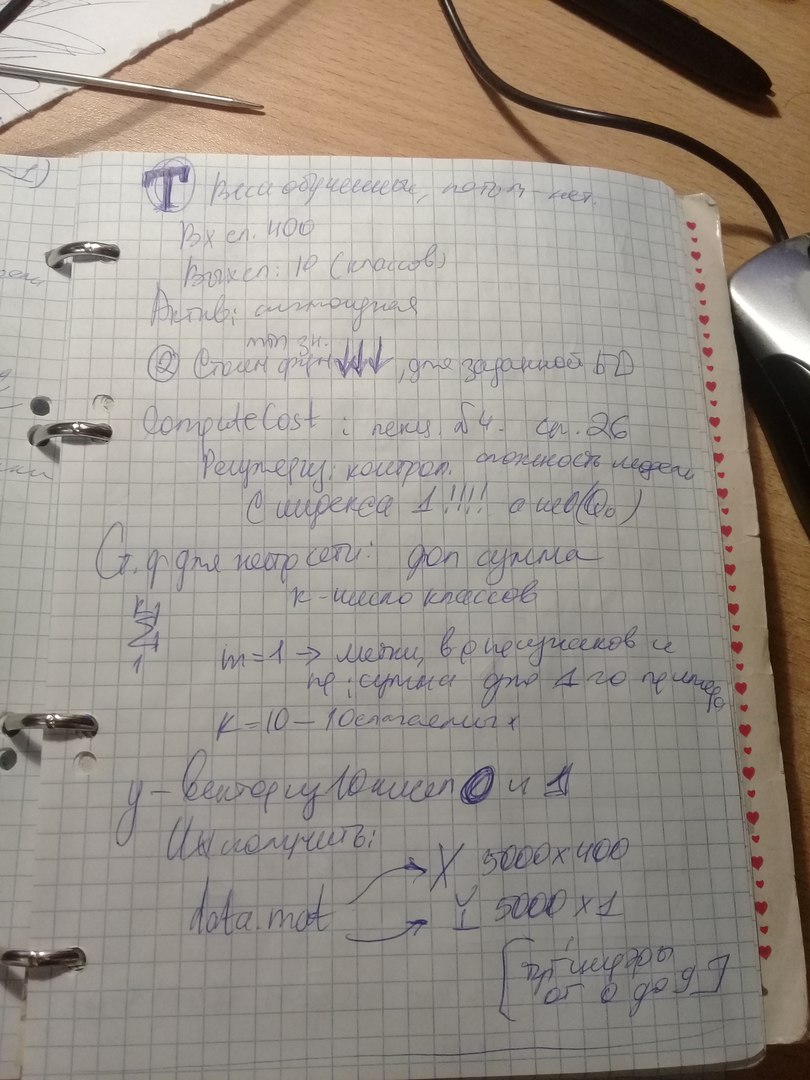 Т Веса обученные, потом - нет.
Вх сл. 400
Вых сл: 10 (классов)
Актив: сигмоидная
зн.
② Стоим фун ↓↓↓, для заданной БД
ComputeCost : лекц. №4. сл. 26
Регуляриз: контрол. сложность модели
С индекса 1!!!! а не 0 (Q₀)
Ст. ф для нейр сети: доп сумма
K - число классов
K
Σ
1
m=1 → метки,
сумма для 1го примера
K=10 - 10 слагаемых
y - вектор из 10 чисел 0 и 1
Их получить:
data.mat
X 5000x400
Y 5000x1
цифры
от 0 до 9]